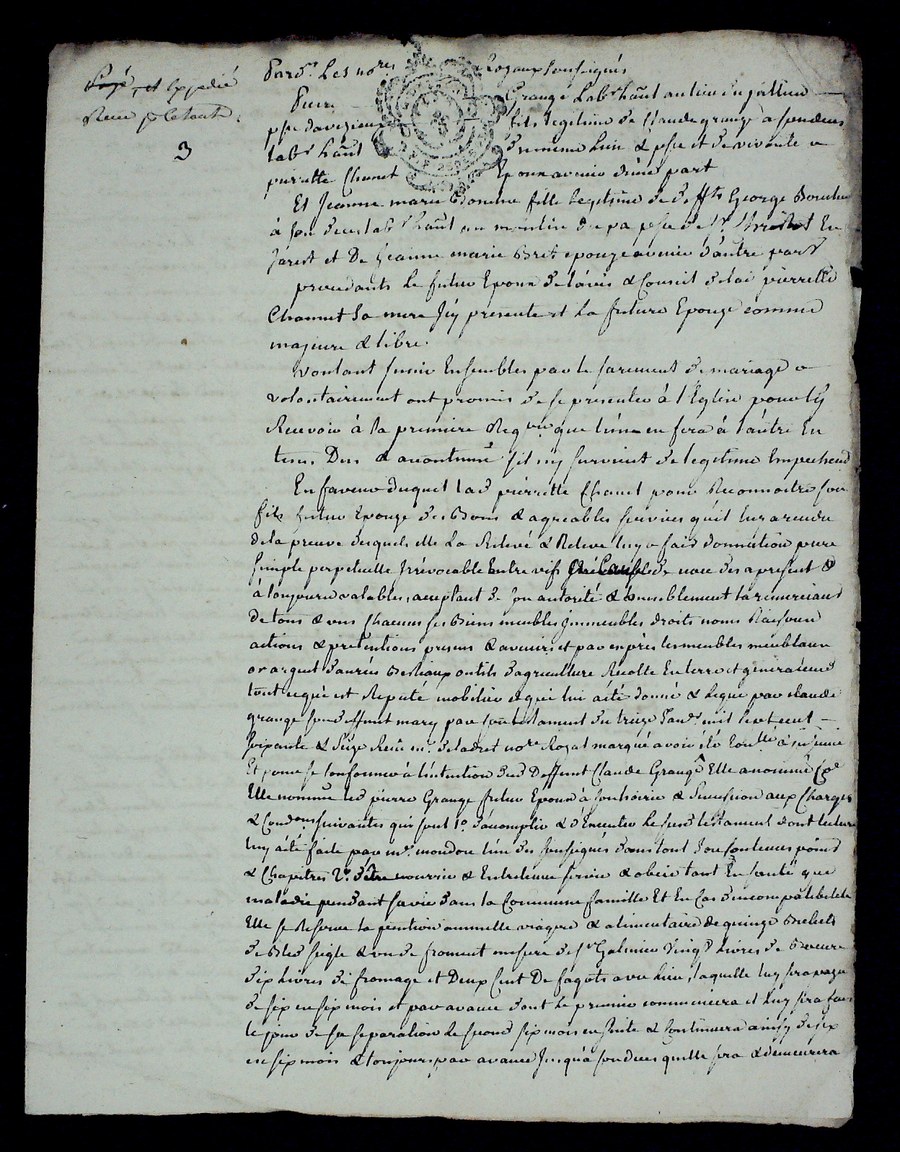 Payé et Expedié
Reçu p. le tout
3
Pard.t Les no.res Royaux soussignés
Pierre Grange Lab.r hãnt au lieu du
p.sse d'aveizieux fils legitime de Claude grange a son deces
lab.r hãnt meme lieu & p.sse et de vivante
pierrette Chanet Epoux avenir d'une part
Et Jeanne marie fille legitime de deff.ts George
à son deces lab.r hãnt au p.sse de S.t En
Jarest et De Jeanne marie epouze avenir d'autre part
procedants le futur Epoux de l'avis & Conseil de lad. pierrette
Chanet Sa mere Icy presente et la future Epouze comme
majeure & libre.
Voulant s'unir Ensembles par le sacrement de mariage
volontairement ont promis de se presenter à l'Eglise pour l'y
Recevoir à la premiere Req.on que l'une en fera à l'autre En
tems Du & accoutumé s'il n'y survient de legitime Empechem.t
En faveur duquel lad. pierrette Chanet pour Reconnoitre son
fils futur Epoux des Bons & agreables services qu'il luy a rendu
de la preuve desquels elle La Relevé & Releve luy a fait donnation pure
simple perpetuelle Irrévocable Entre vifs & a cause de noce des a present &
à toujours valables, acceptant de son autorité & humblement la remerciant
de tous & uns chacuns ses Biens meubles Immeubles droits noms Raisons
actions & prétentions presens & avenirs et par exprès les meubles meublans
or argent danrées Bestiaux outils d'agriculture Recolte En terre et généralement
tout ce qui est Reputé mobilier et qui lui a été donné & legué par claude
grange son deffunt mary par son testament du treize Janv. mil sept cent
soixante & seize Reçu m.e no.re Royal marqué avoir été Con.llé
Et pour se conformer à l'intention dud. Deffunt Claude Grange Elle a nommé
Elle nomme led. pierre Grange futur Epoux à son hoirie & Succession aux Charges
& Condõns suivantes qui sont 1.o d'acomplir & d'Executer le susd. testament dont lecture
luy a été faite par m.e mondon l'un des soussignés dans tout son contenu points
& Chapitres 2.o d'être nourrie & Entretenue servie & obeie tant En santé que
maladie pendant sa vie dans la Commune famille Et En Cas d'incompatibilité
Elle se Reserve la pention annuelle viagere & alimentaire de quinze Bichets
de Bled seigle & un de froment mesure de S.t Galmier Vingt Livres de Beurre
dix Livres de fromage et Deux Cent De fagots avec lien, laquelle luy sera payé
de six en six mois et par avance dont le premier commencera et luy sera fait
le jour de sa separation le second six mois en suite & Continuera ainsy de six
en six mois & toujours par avance Jusqu'à son deces quelle sera & demeurera